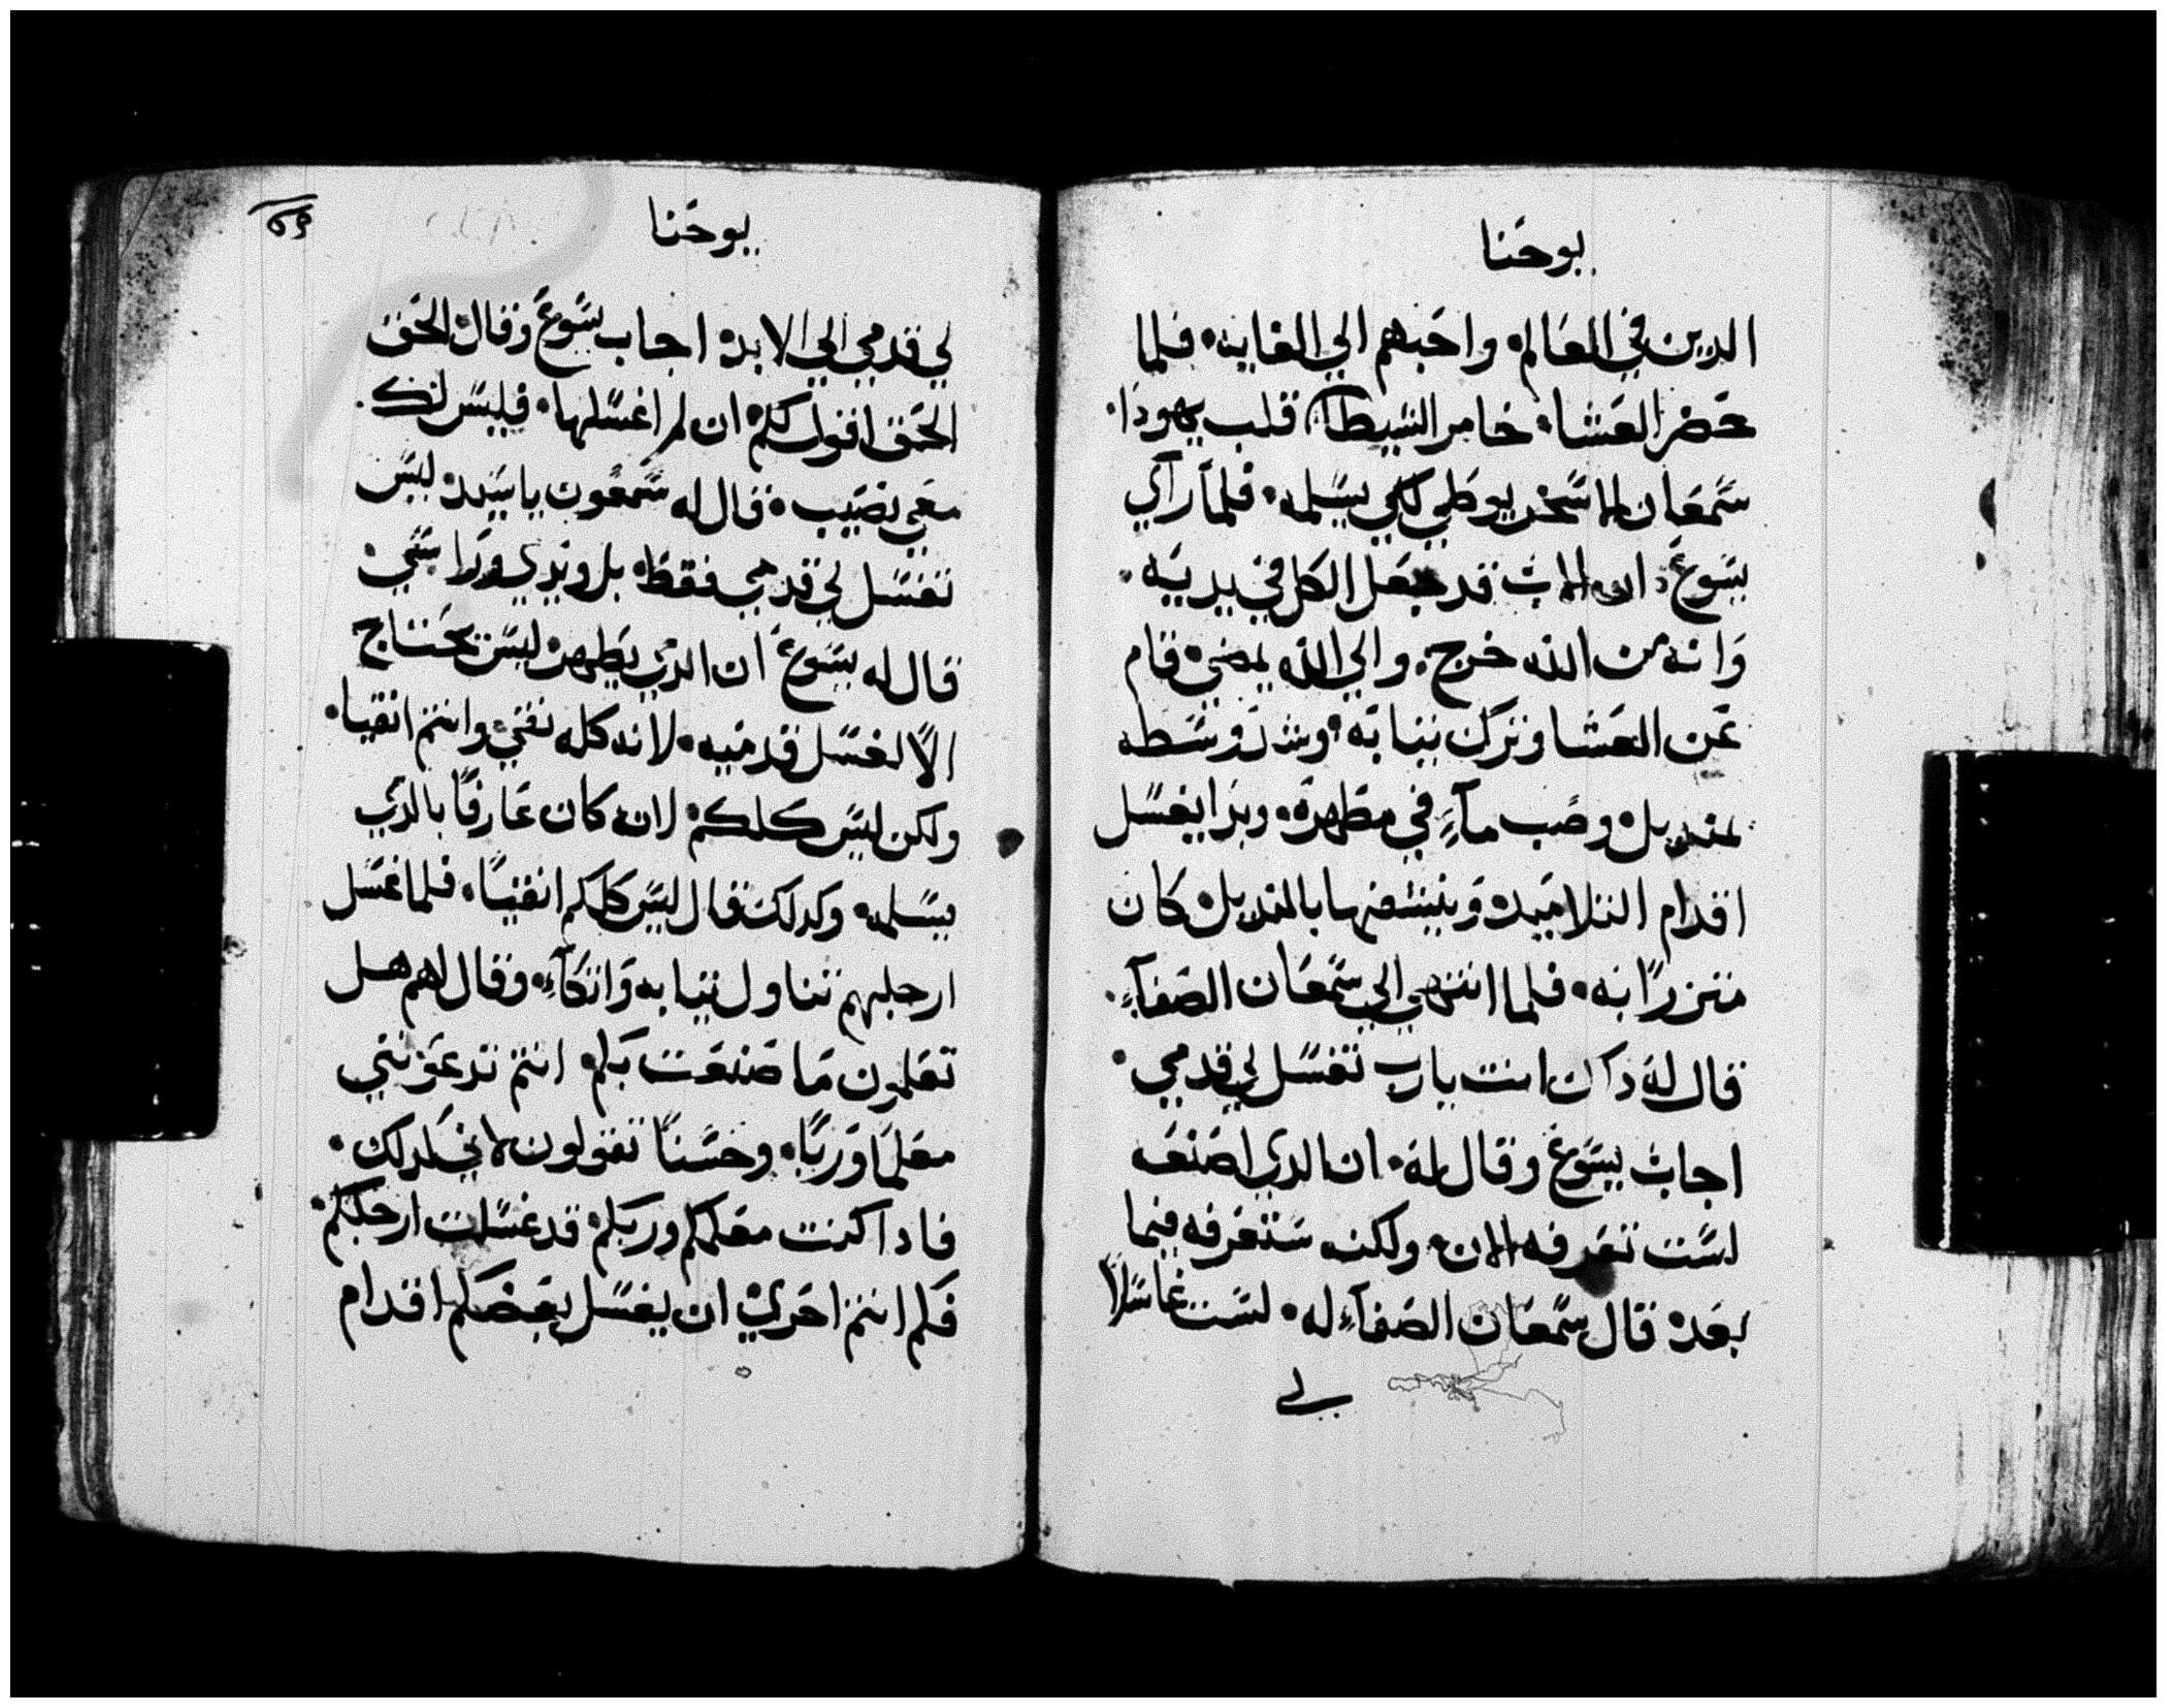 يوحنا
الدين في العالم، واحبهم الي الغايه، فلما
حضر العشا، خامر الشيطان قلب يهودا،
سمعان الاسخريوطي لكي يسلمه، فلما راي
يسوع، ان الاب قد جعل الكل في يديه،
وانه من الله خرج، والي الله يمضي، قام
عن العشا وترك ثيابه، وشد وسطه
بمنديل، وصب مآءٍ في مطهرة، وبدا يغسل
اقدام التلاميد، وينشفها بالمنديل، كان
متزرًا به، فلما انتهي الي سمعان الصفآءِ،
قال له داك انت يارب تغسل لي قدمي،
اجاب يسوع وقال له، ان الدي اصنعه
لست تعرفه الان، ولكنه ستعرفه فيما
بعد، قال سمعان الصفآءِ له، لست غاسلًا
لي
يوحنا
لي قدمي الي الابد، اجاب يسوع وقال، الحق
الحق اقول لكم، ان لم اغسلها، فليس لك
معي نصيب، فقال له سمعون ياسيد، ليس
تغسل لي قدمي فقط، بل ويدي وراسي،
قال له يسوع ان الدي يطهر، ليس يحتاج
الّا لغسل قدميه، لانه كله نقي، وانتم انقيا،
ولكن ليس كلكم، لانه كان عارفًا بالدي
يسلمه، وكدلك قال ليس كلكم انقيًا، فلما غسل
ارجلهم تناول ثيابه واتكآءِ، وقال لهم هل
تعلمون ما صنعت بكم، انتم تدعونني
معلمًا وربًا، وحسنًا تقولون، لاني كدلك،
فادا كنت معلمكم وربكم، قد غسلت ارجلكم،
فكم انتم احري، ان يغسل بعضكم اقدام